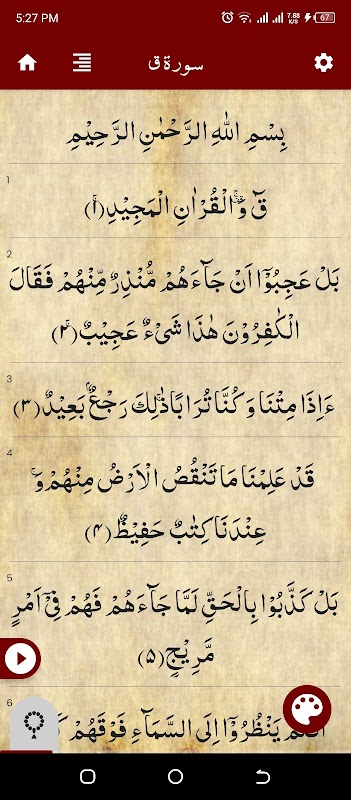 5:27 PM 7.88 K/S 67
سورة ق
بِسْمِ اللهِ الرَّحْمٰنِ الرَّحِيْمِ
1
قٓ وَّالْقُرْاٰنِ الْمَجِيْدِ(۱)
2
بَلْ عَجِبُوْۤا اَنْ جَآءَهُمْ مُّنْذِرٌ مِّنْهُمْ فَقَالَ
الْكٰفِرُوْنَ هٰذَا شَیْءٌ عَجِيْبٌ(۲)
3
ءَاِذَا مِتْنَا وَ كُنَّا تُرَابًاۚ ذٰلِكَ رَجْعٌۢ بَعِيْدٌ(۳)
4
قَدْ عَلِمْنَا مَا تَنْقُصُ الْاَرْضُ مِنْهُمْۚ وَ
عِنْدَنَا كِتٰبٌ حَفِيْظٌ(۴)
5
بَلْ كَذَّبُوْا بِالْحَقِّ لَمَّا جَآءَهُمْ فَهُمْ فِیْۤ اَمْرٍ
مَّرِيْجٍ(۵)
6
يَنْظُرُوْۤا اِلَى السَّمَآءِ فَوْقَهُمْ